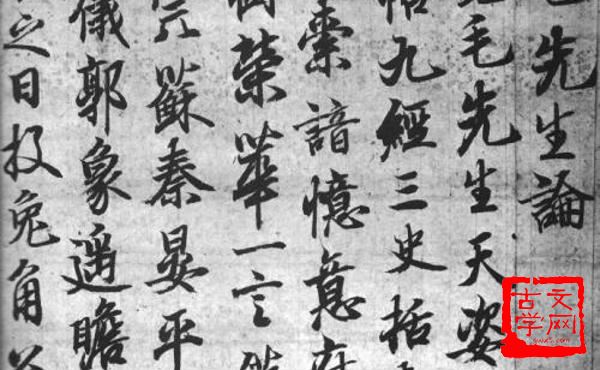 先生論
毛先生天姿
九經三史括
索諳憶意府
樹榮華一言
蘇秦晏平
儀郭象遥瞻
之日投兔角公
古文
学网